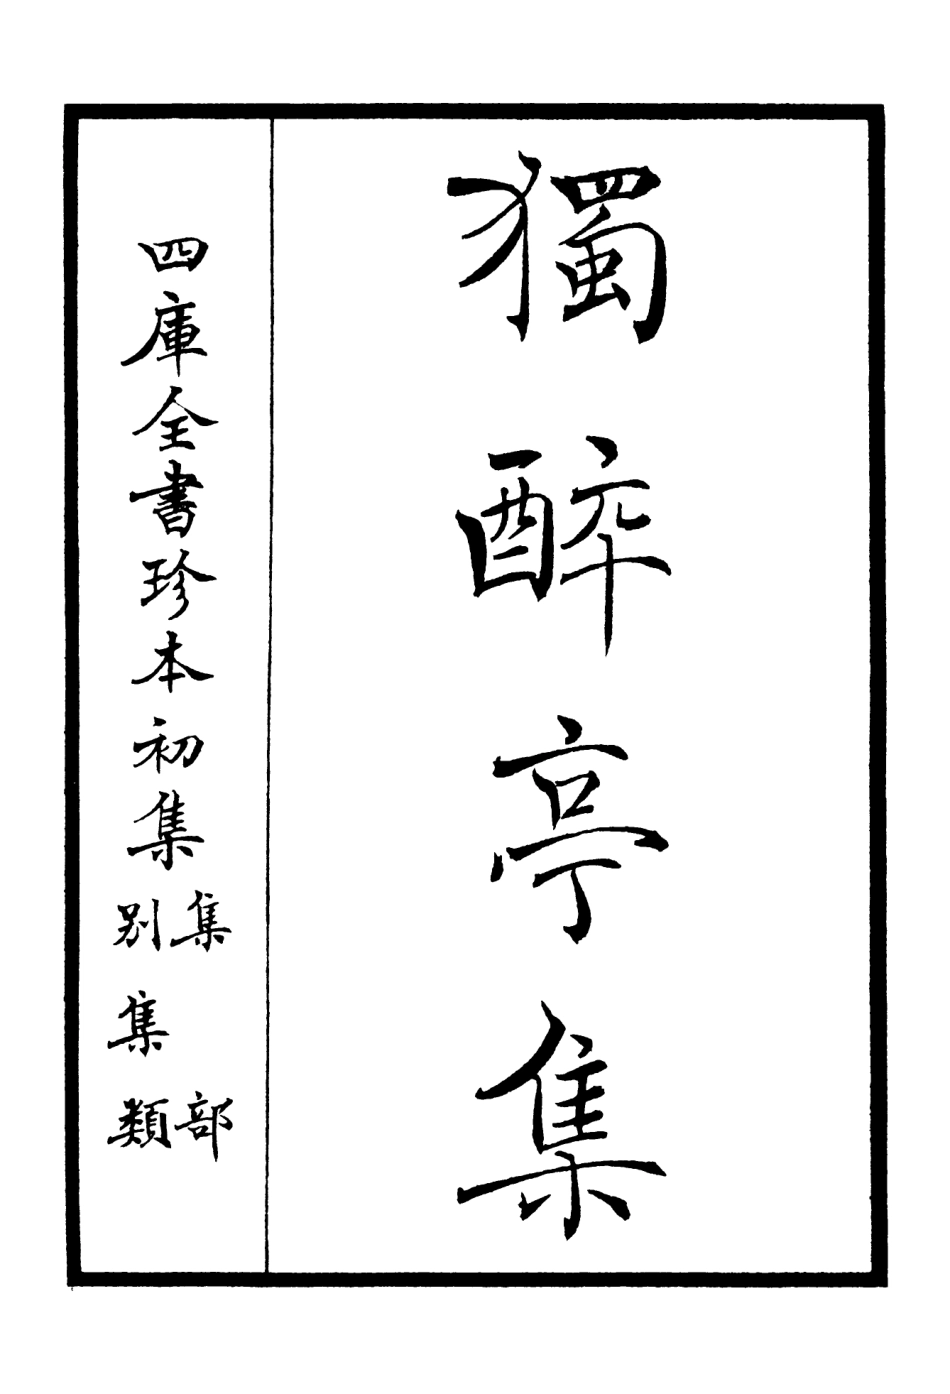 獨醉亭集
四庫全書珍本初集
集部
別集類